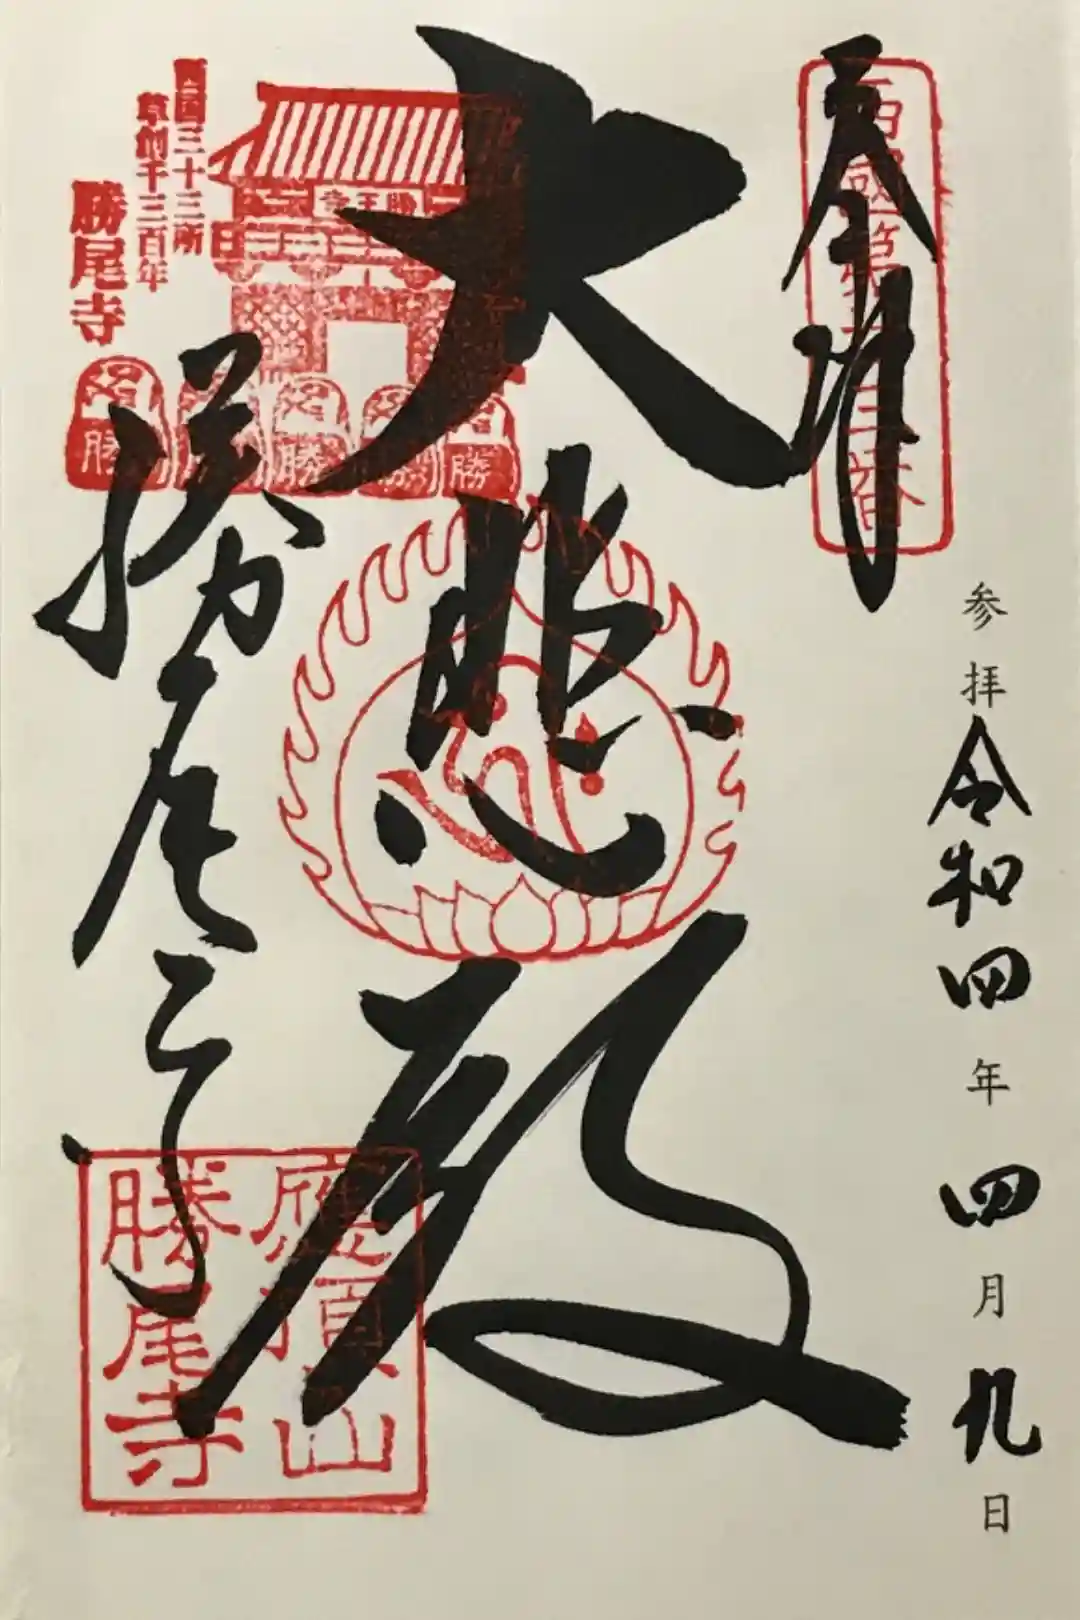 奉拝
西國第二十三番
参拝 令和四年四月九日
大悲殿
西国三十三所
草創千三百年
勝尾寺
勝王寺
勝
勝
勝
勝
勝
勝尾寺
應頂山
勝尾寺